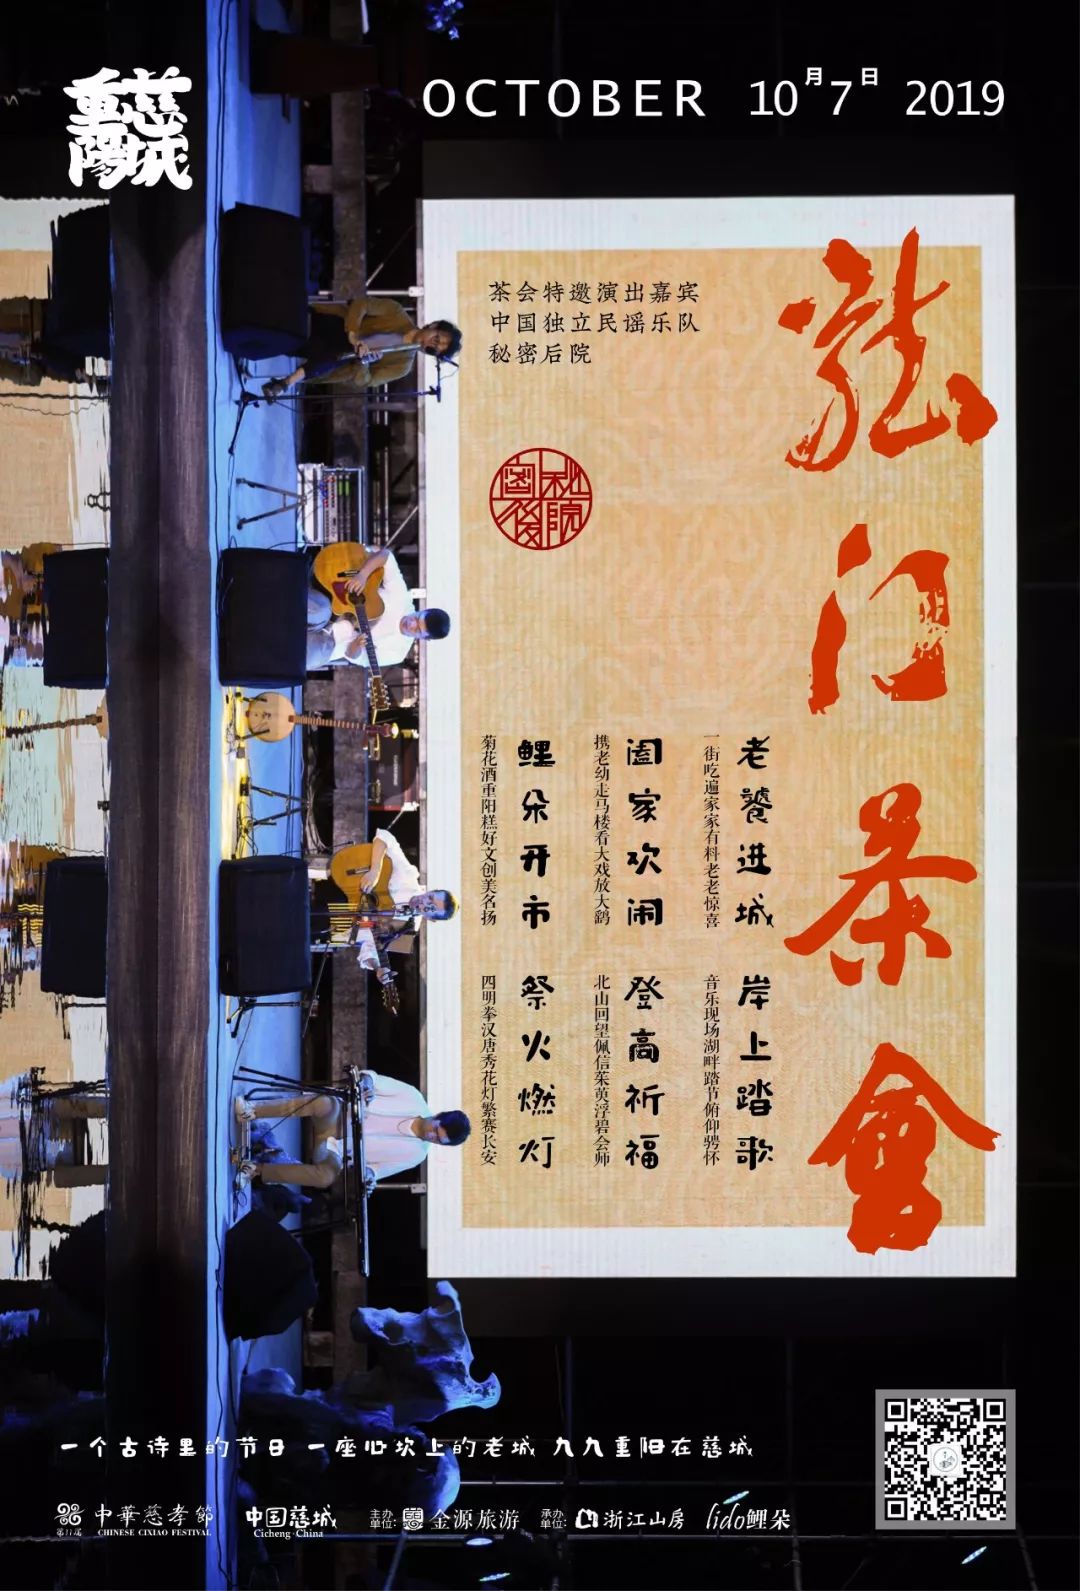 慈城
重陽
OCTOBER 10月7日 2019
龍门茶會
茶会特邀演出嘉宾
中国独立民谣乐队
秘密后院
秘密後院
老饕进城
一街吃遍家家有料老老惊喜
岸上踏歌
音乐现场湖畔踏节俯仰骋怀
阖家欢闹
携老幼走马楼看大戏放大鹞
登高祈福
北山回望佩信茱萸浮碧会师
鲤朵开市
菊花酒重阳糕好文创美名扬
祭火燃灯
四明拳汉唐秀花灯繁赛长安
一个古诗里的节日 一座心坎上的老城 九九重阳在慈城
第11届 中華慈孝節
CHINESE CIXIAO FESTIVAL
中国慈城
Cicheng·China
主办单位: 金源旅游
承办单位: 浙江山房 lido鲤朵